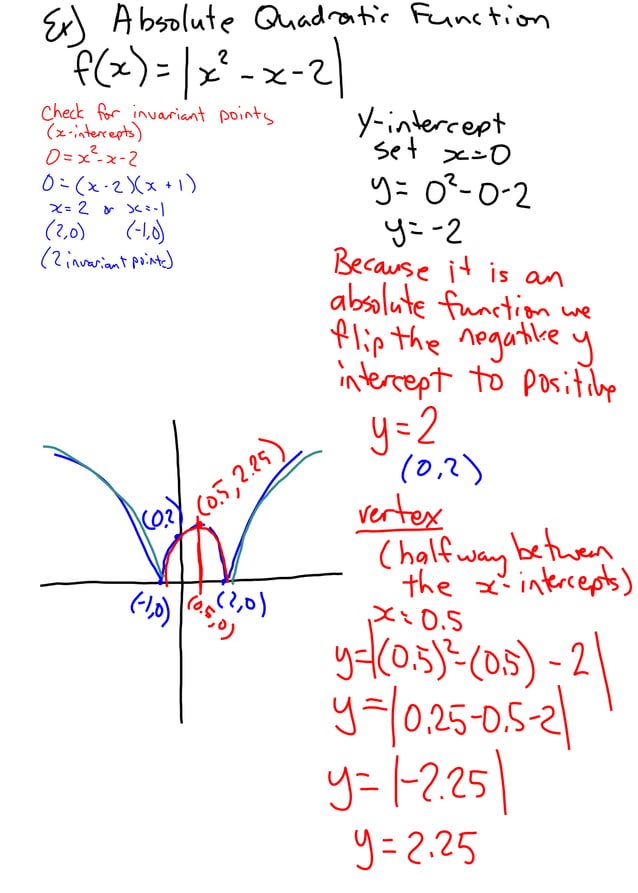 Ex) Absolute Quadratic Function
f(x) = |x² - x - 2|
Check for invariant points
(x-intercepts)
0 = x² - x - 2
0 = (x - 2)(x + 1)
x = 2 or x = -1
(2,0) (-1,0)
(2 invariant points)
y-intercept
set x = 0
y = 0² - 0 - 2
y = -2
Because it is an
absolute function we
flip the negative y
intercept to positive
y = 2
(0,2)
vertex
(halfway between
the x-intercepts)
x = 0.5
y = |(0.5)² - (0.5) - 2|
y = |0.25 - 0.5 - 2|
y = |-2.25|
y = 2.25
(0.5, 2.25)
(0,2)
(-1,0) (0.5,0) (2,0)